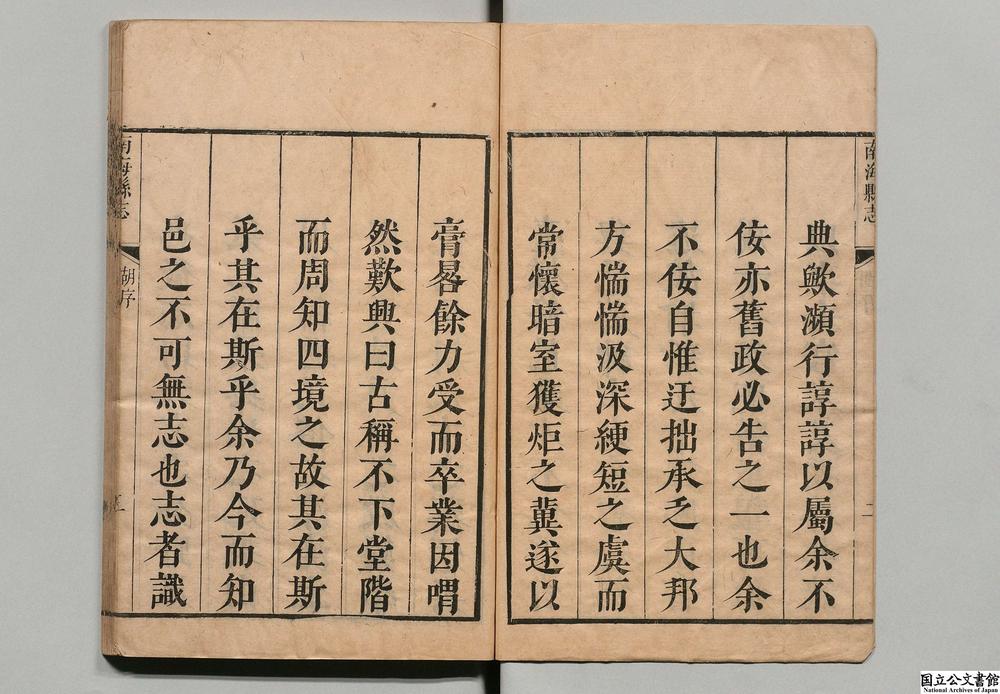 南海縣志
二
典歟瀕行諄諄以屬余不
佞亦舊政必告之一也余
不佞自惟迂拙承乏大邦
方惴惴汲深綆短之虞而
常懷暗室獲炬之冀遂以
膏晷餘力受而卒業因喟
然歎興曰古稱不下堂階
而周知四境之故其在斯
乎其在斯乎余乃今而知
邑之不可無志也志者識
南海縣志
胡序
三
国立公文書館
National Archives of Japan